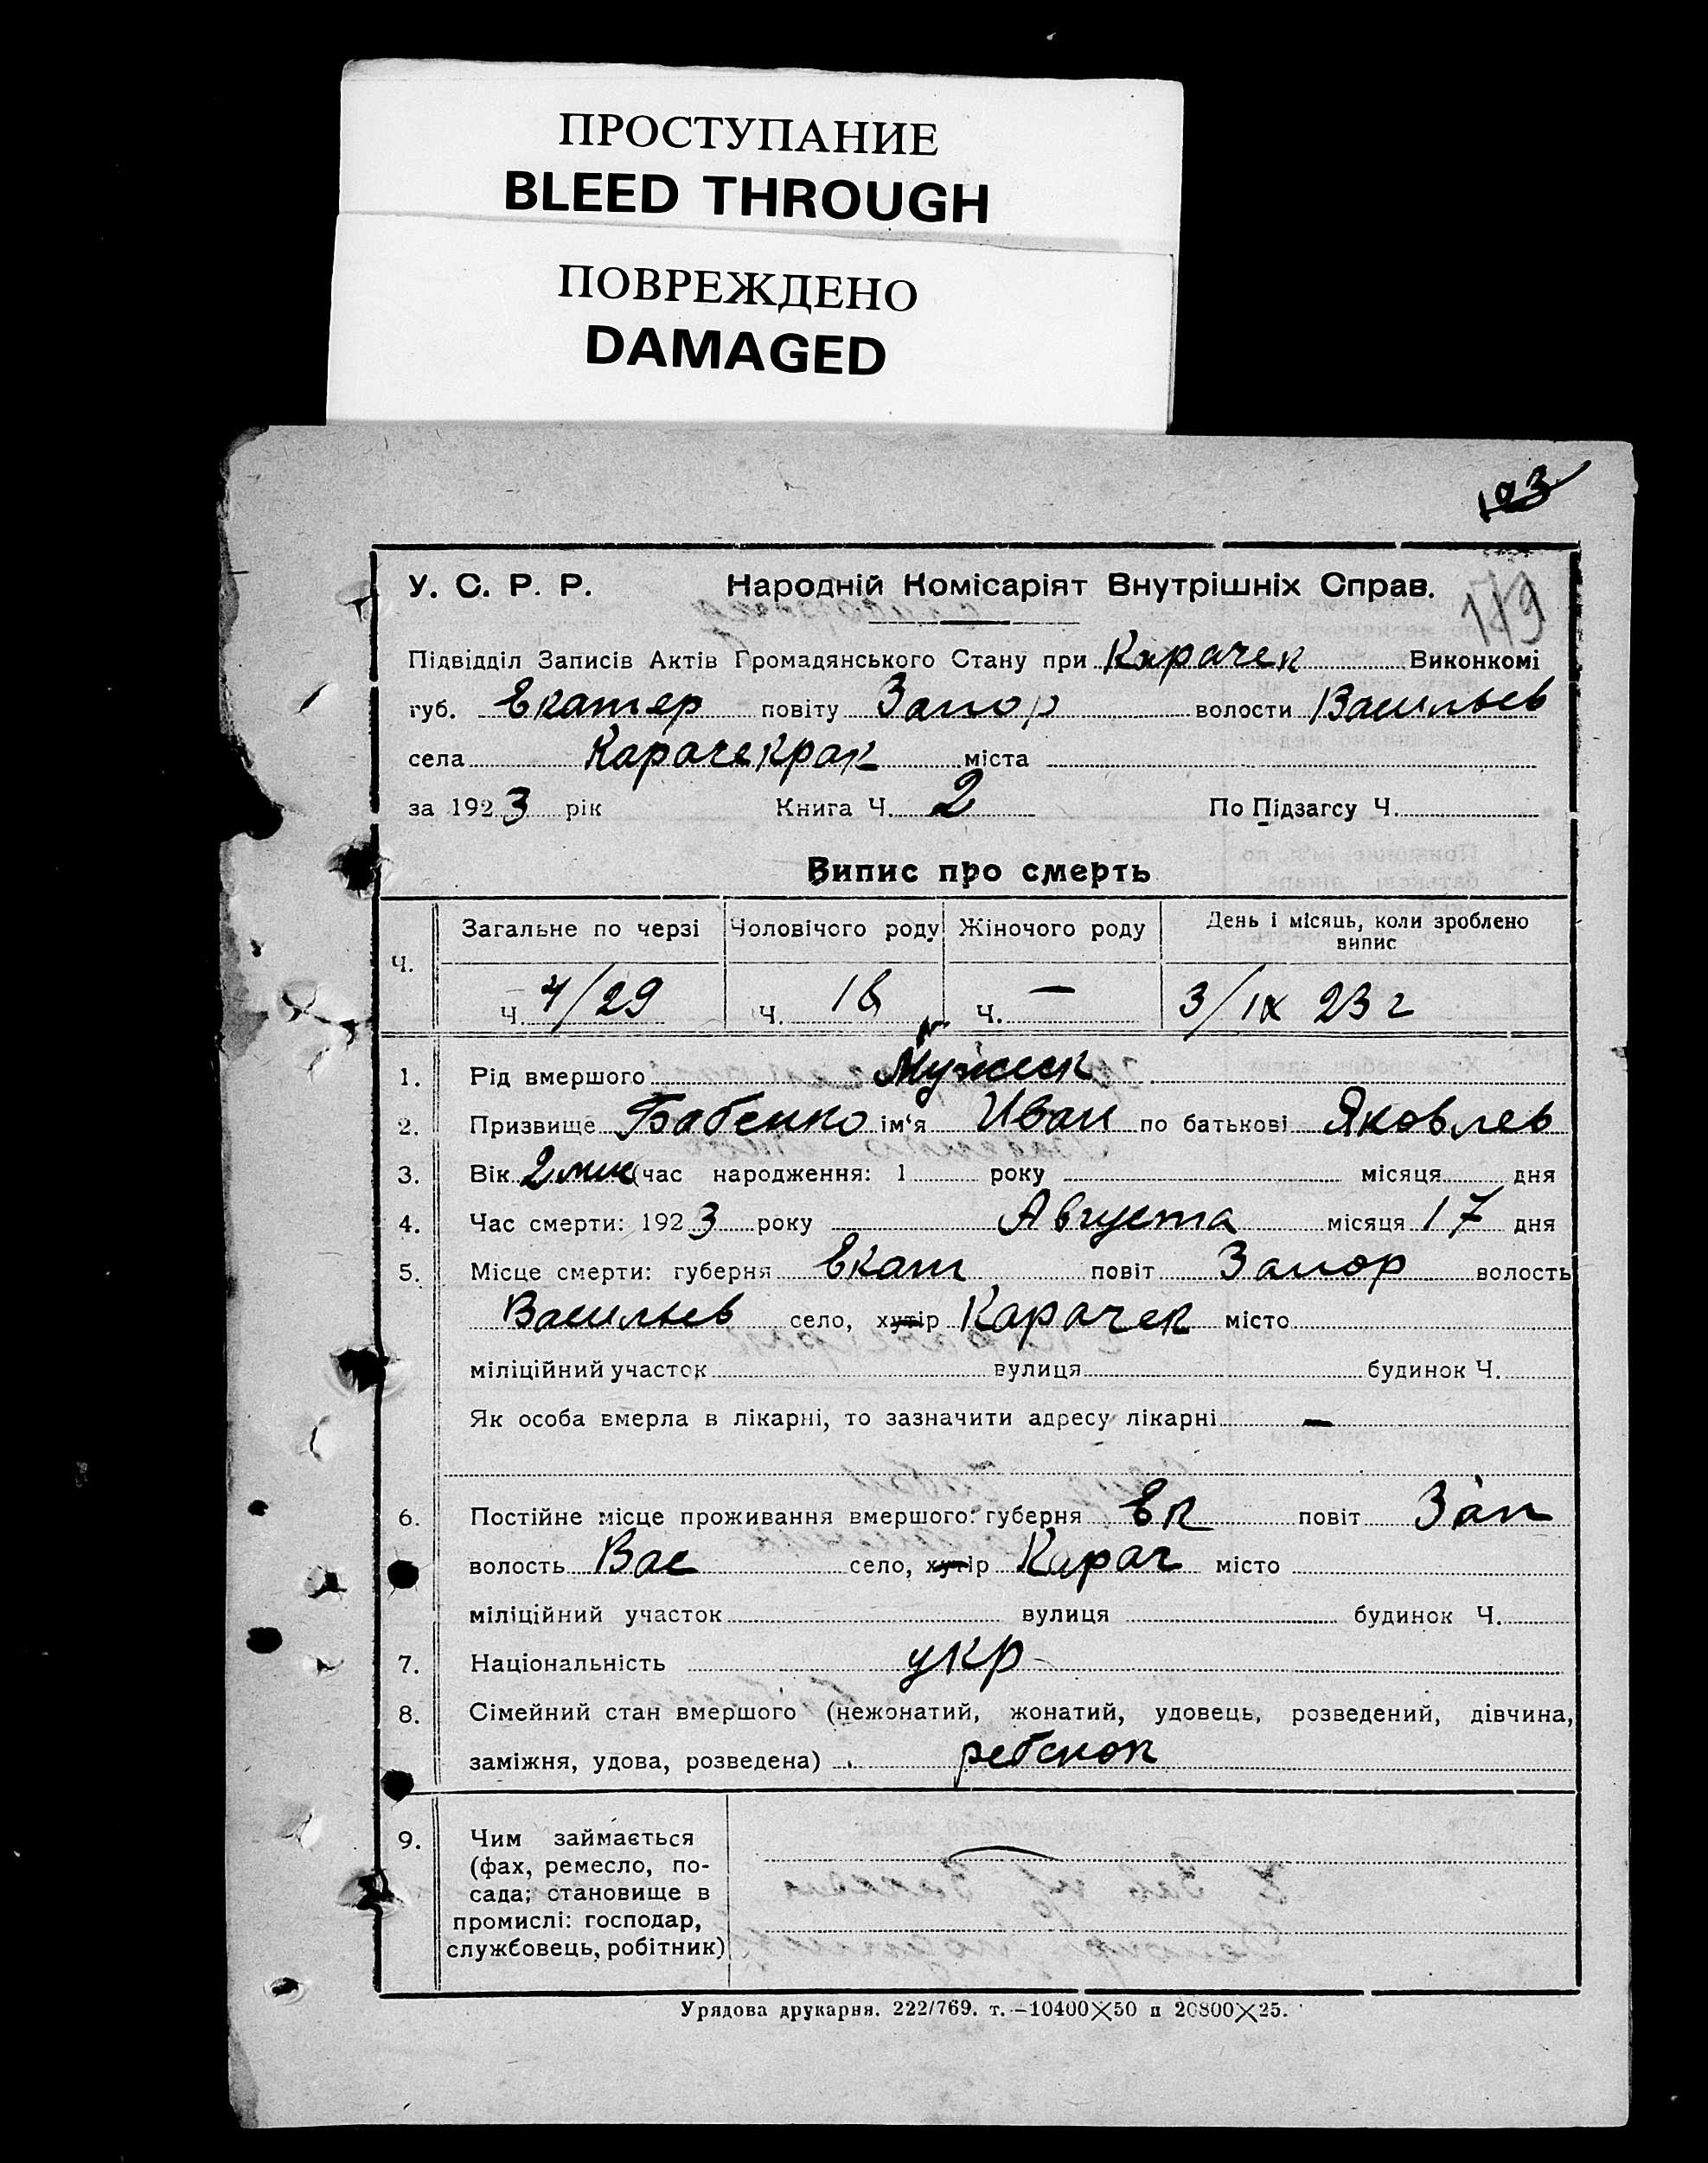 ПРОСТУПАНИЕ
BLEED THROUGH
ПОВРЕЖДЕНО
DAMAGED
193
У. С. Р. Р. Народній Комісаріят Внутрішніх Справ.
179
Підвідділ Записів Актів Громадянського Стану при Карачек Виконкомі
губ. Екатер повіту Запор волости Васильев
села Карачекрак міста
за 1923 рік Книга Ч. 2 По Підзагсу Ч.
Випис про смерть
Ч. Загальне по черзі Чоловічого роду Жіночого роду День і місяць, коли зроблено випис
Ч. 4/29 Ч. 16 Ч. — 3/IX 23 г
1. Рід вмершого Мужеск
2. Призвище Бабенко ім'я Иван по батькові Яковлев
3. Вік 2 мис (час народження: 1 року місяця дня
4. Час смерти: 1923 року Августа місяця 17 дня
5. Місце смерти: губерня Екат повіт Запор волость
Васильев село, хутір Карачек місто
міліційний участок вулиця будинок Ч.
Як особа вмерла в лікарні, то зазначити адресу лікарні —
6. Постійне місце проживання вмершого: губерня Ек повіт Зап
волость Вас село, хутір Карач місто
міліційний участок вулиця будинок Ч.
7. Національність укр
8. Сімейний стан вмершого (нежонатий, жонатий, удовець, розведений, дівчина,
заміжня, удова, розведена) ребенок
9. Чим займається
(фах, ремесло, по-
сада; становище в
промислі: господар,
службовець, робітник)
Урядова друкарня. 222/769. т.—10400×50 п 20800×25.